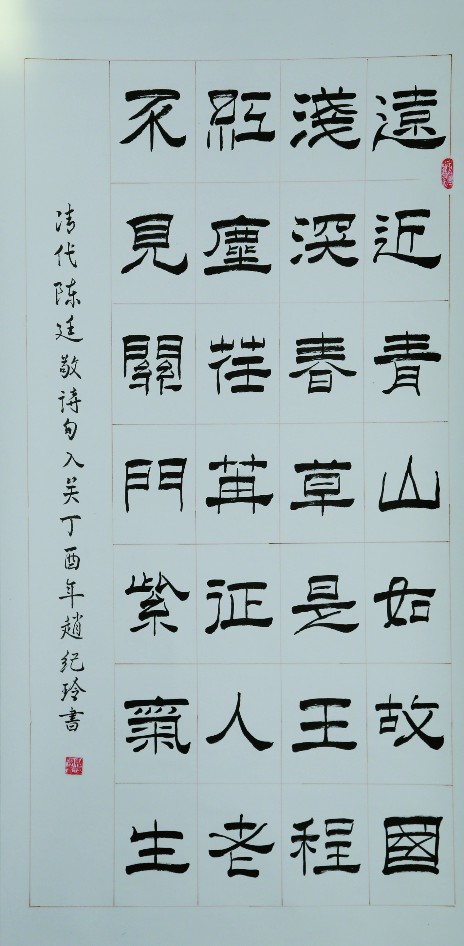 遠近青山如故國
淺深春草是王程
紅塵荏苒征人老
不見關門紫氣生
清代陈廷敬诗句入关丁酉年趙纪玲書